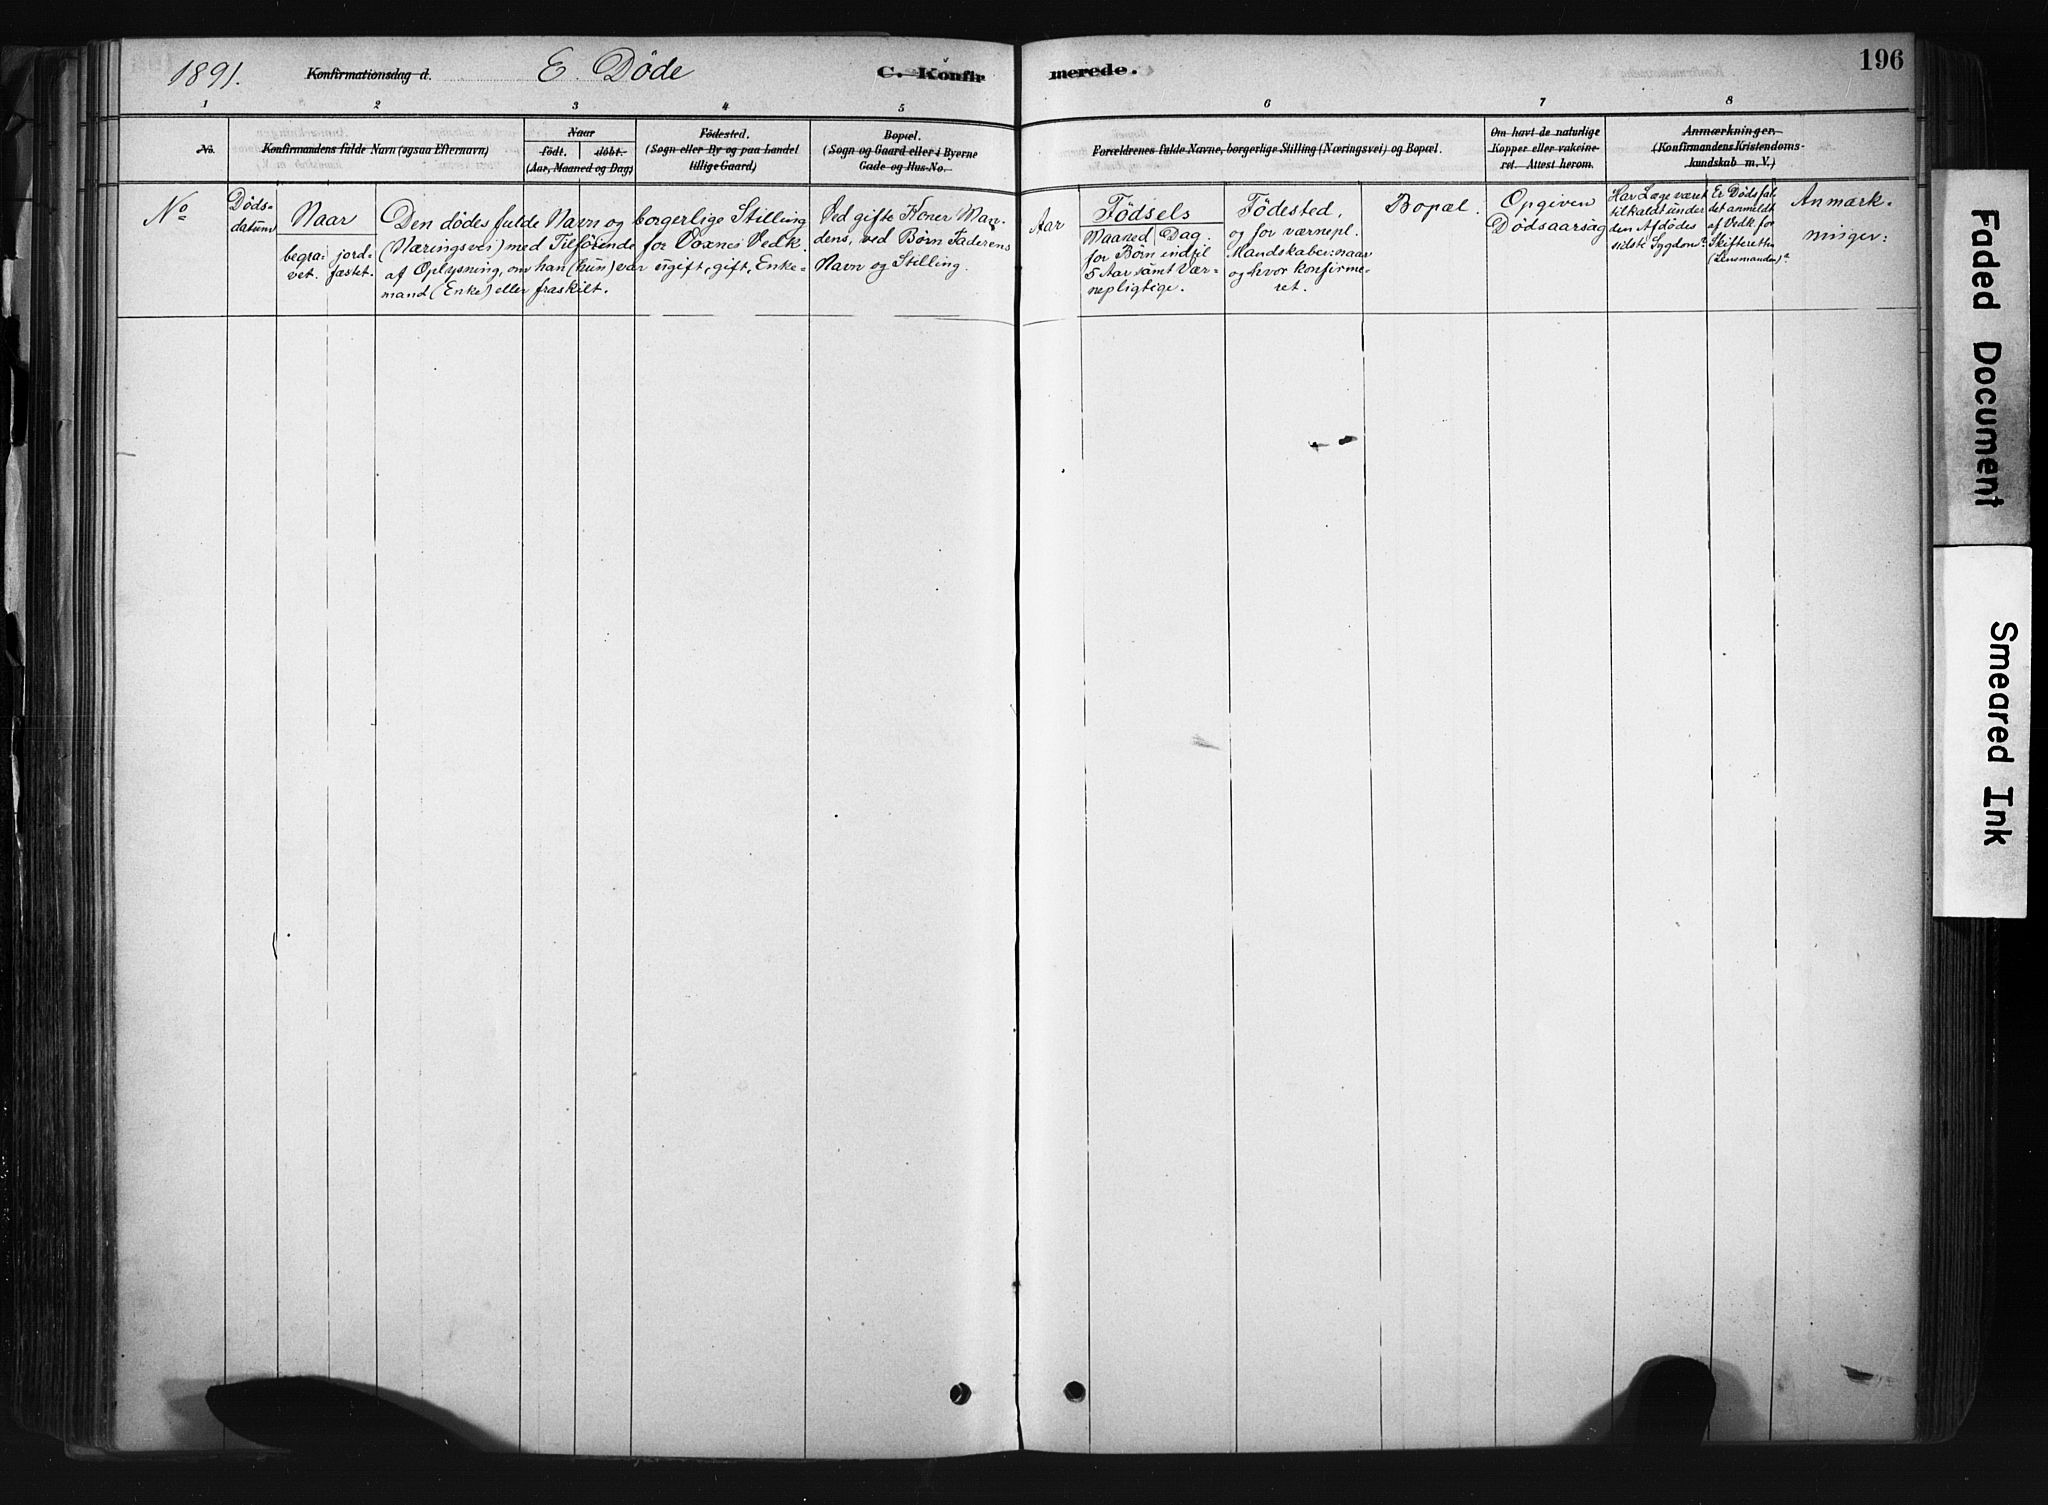 1891. Konfirmationsdag d. E. Döde C. Konfir merede. 196
1 2 3 4 5 6 7 8
No. Konfirmandens fulde Navn (ogsaa Efternavn)
Naar
født. döbt.
(Aar, Maaned og Dag)
Födested.
(Sogn eller By og paa Landet
tillige Gaard)
Bopæl.
(Sogn og Gaard eller i Byerne
Gade og Hus-No.
Forældrenes fulde Navne, borgerlige Stilling (Næringsvei) og Bopæl.
Om havt de naturlige
Kopper eller vakcine-
ret. Attest herom.
Anmærkninger.
(Konfirmandens Kristendoms-
kundskab m. V.)
No
Døds-
datum
Naar
begra-
vet.
jord-
fæstet.
Den dödes fulde Navn og borgerlige Stilling
(Næringsvei) med Tilföiende for Voxnes Vedk.
af Oplysning, om han (hun) var ugift, gift, Enke-
mand (Enke) eller fraskilt.
Ved gifte Koner Man-
dens, ved Børn Faderens
Navn og Stilling.
Aar
Födsels
Maaned Dag.
for Börn indtil
5 Aar samt Vær-
nepligtige.
Födested,
og for værnepl.
Mandskaber: naar
og hvor konfirme-
ret.
Bopæl.
Opgiven
Dödsaarsag
Har Læge været
tilkaldt under
den Afdödes
sidste Sygdom?
Er Dödsfal
det anmeldt
af Vedk. for
Skifteretten
(Lensmanden)?
Anmærk-
ninger:
Faded Document
Smeared Ink